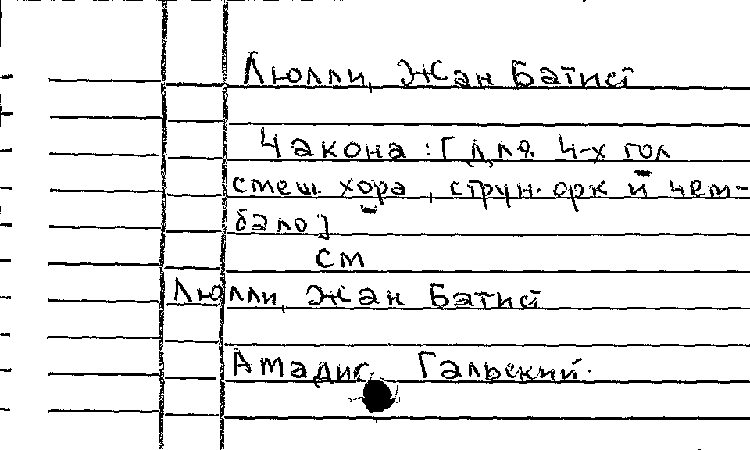 Люлли, Жан Батист
Чакона: [для 4-х гол
смеш хора, струн. орк и чем-
бало]
см
Люлли, Жан Батист
Амадис Гальский.